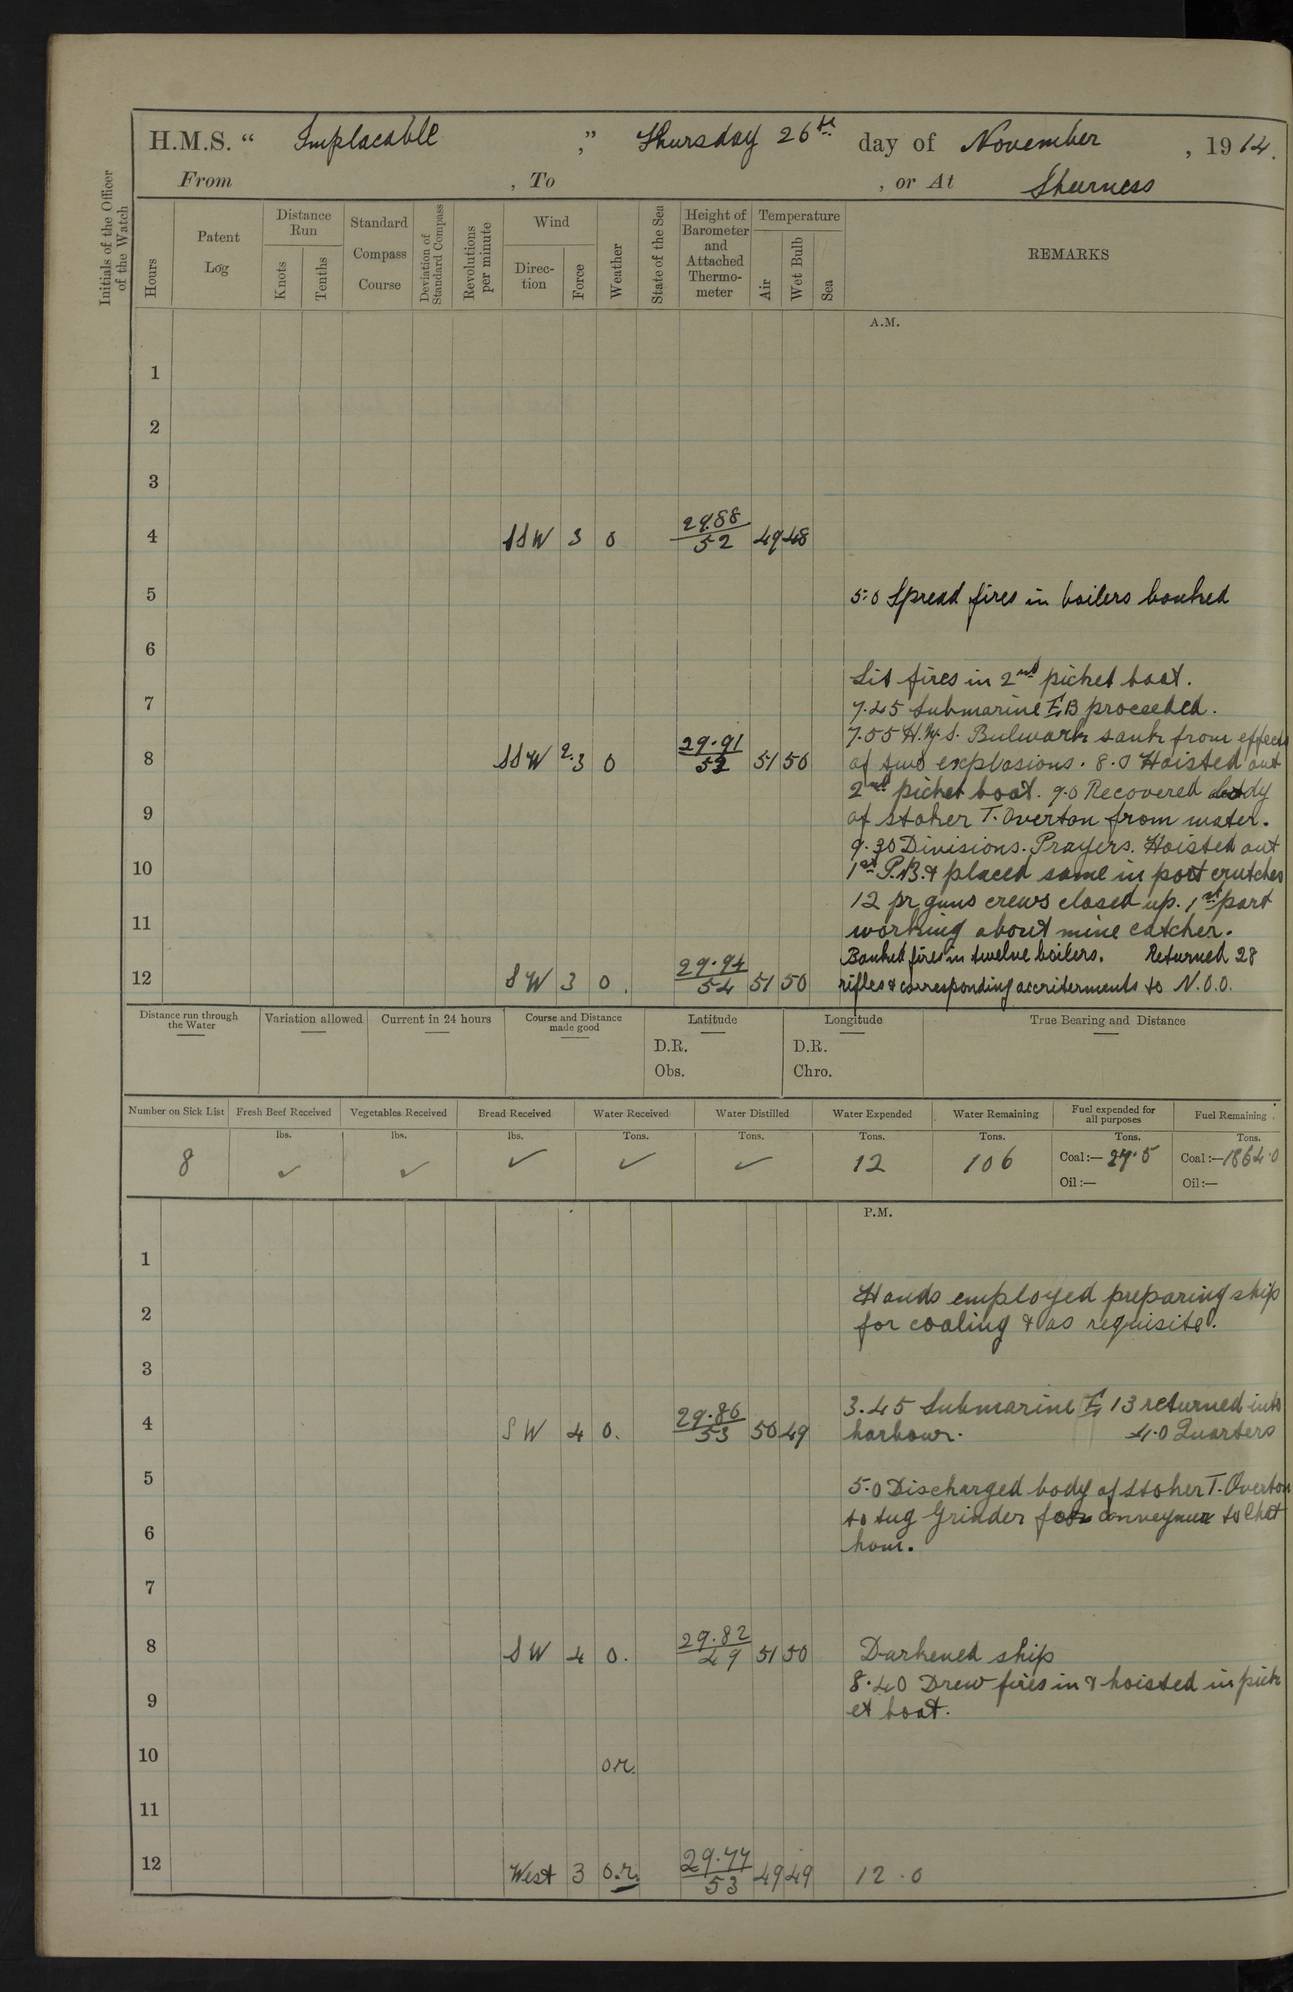 H.M.S. “ Implacable ,” Thursday 26th day of November , 1914.
From , To , or At Sheerness
Initials of the Officer of the Watch
Hours
Patent Log
Distance Run
Knots
Tenths
Standard Compass Course
Deviation of Standard Compass
Revolutions per minute
Wind
Direc-tion
Force
Weather
State of the Sea
Height of Barometer and Attached Thermo-meter
Temperature
Air
Wet Bulb
Sea
REMARKS
A.M.
1
2
3
4 SSW 3 o 29.88/52 49 48
5 5.0 Spread fires in boilers banked
6
Lit fires in 2nd picket boat.
7 7.45 Submarine E 13 proceeded.
7.55 H.M.S. Bulwark sank from effects
8 SSW 2.3 o 29.91/52 51 50 of two explosions. 8.0 Hoisted out
2nd picket boat. 9.0 Recovered body
9 of stoker T. Overton from water.
9.30 Divisions. Prayers. Hoisted out
10 1st P.B. & placed same in port crutches
12 pr guns crews closed up. 1st part
11 working about mine catcher.
Banked fires in twelve boilers. Returned 28
12 SW 3 o. 29.94/54 51 50 rifles & corresponding accriterments to N.O.O.
Distance run through the Water
Variation allowed
Current in 24 hours
Course and Distance made good
Latitude
D.R.
Obs.
Longitude
D.R.
Chro.
True Bearing and Distance
Number on Sick List
Fresh Beef Received
Vegetables Received
Bread Received
Water Received
Water Distilled
Water Expended
Water Remaining
Fuel expended for all purposes
Fuel Remaining
lbs. lbs. lbs. Tons. Tons. Tons. Tons. Tons. Tons.
8 ✓ ✓ ✓ ✓ ✓ 12 106 Coal:— 27.5 Coal:— 1864.0
Oil:— Oil:—
P.M.
1
Hands employed preparing ship
2 for coaling & as requisite.
3
3.45 Submarine E 13 returned into
4 SW 4 o. 29.86/53 50 49 harbour. 4.0 Quarters
5 5.0 Discharged body of stoker T. Overton
to tug Grinder for to Chat
6 ham.
7
8 SW 4 o. 29.82/49 51 50 Darkened ship
8.40 Drew fires in & hoisted in pick
9 et boat.
10 o.r.
11
12 West 3 o.r. 29.77/53 49 49 12.0